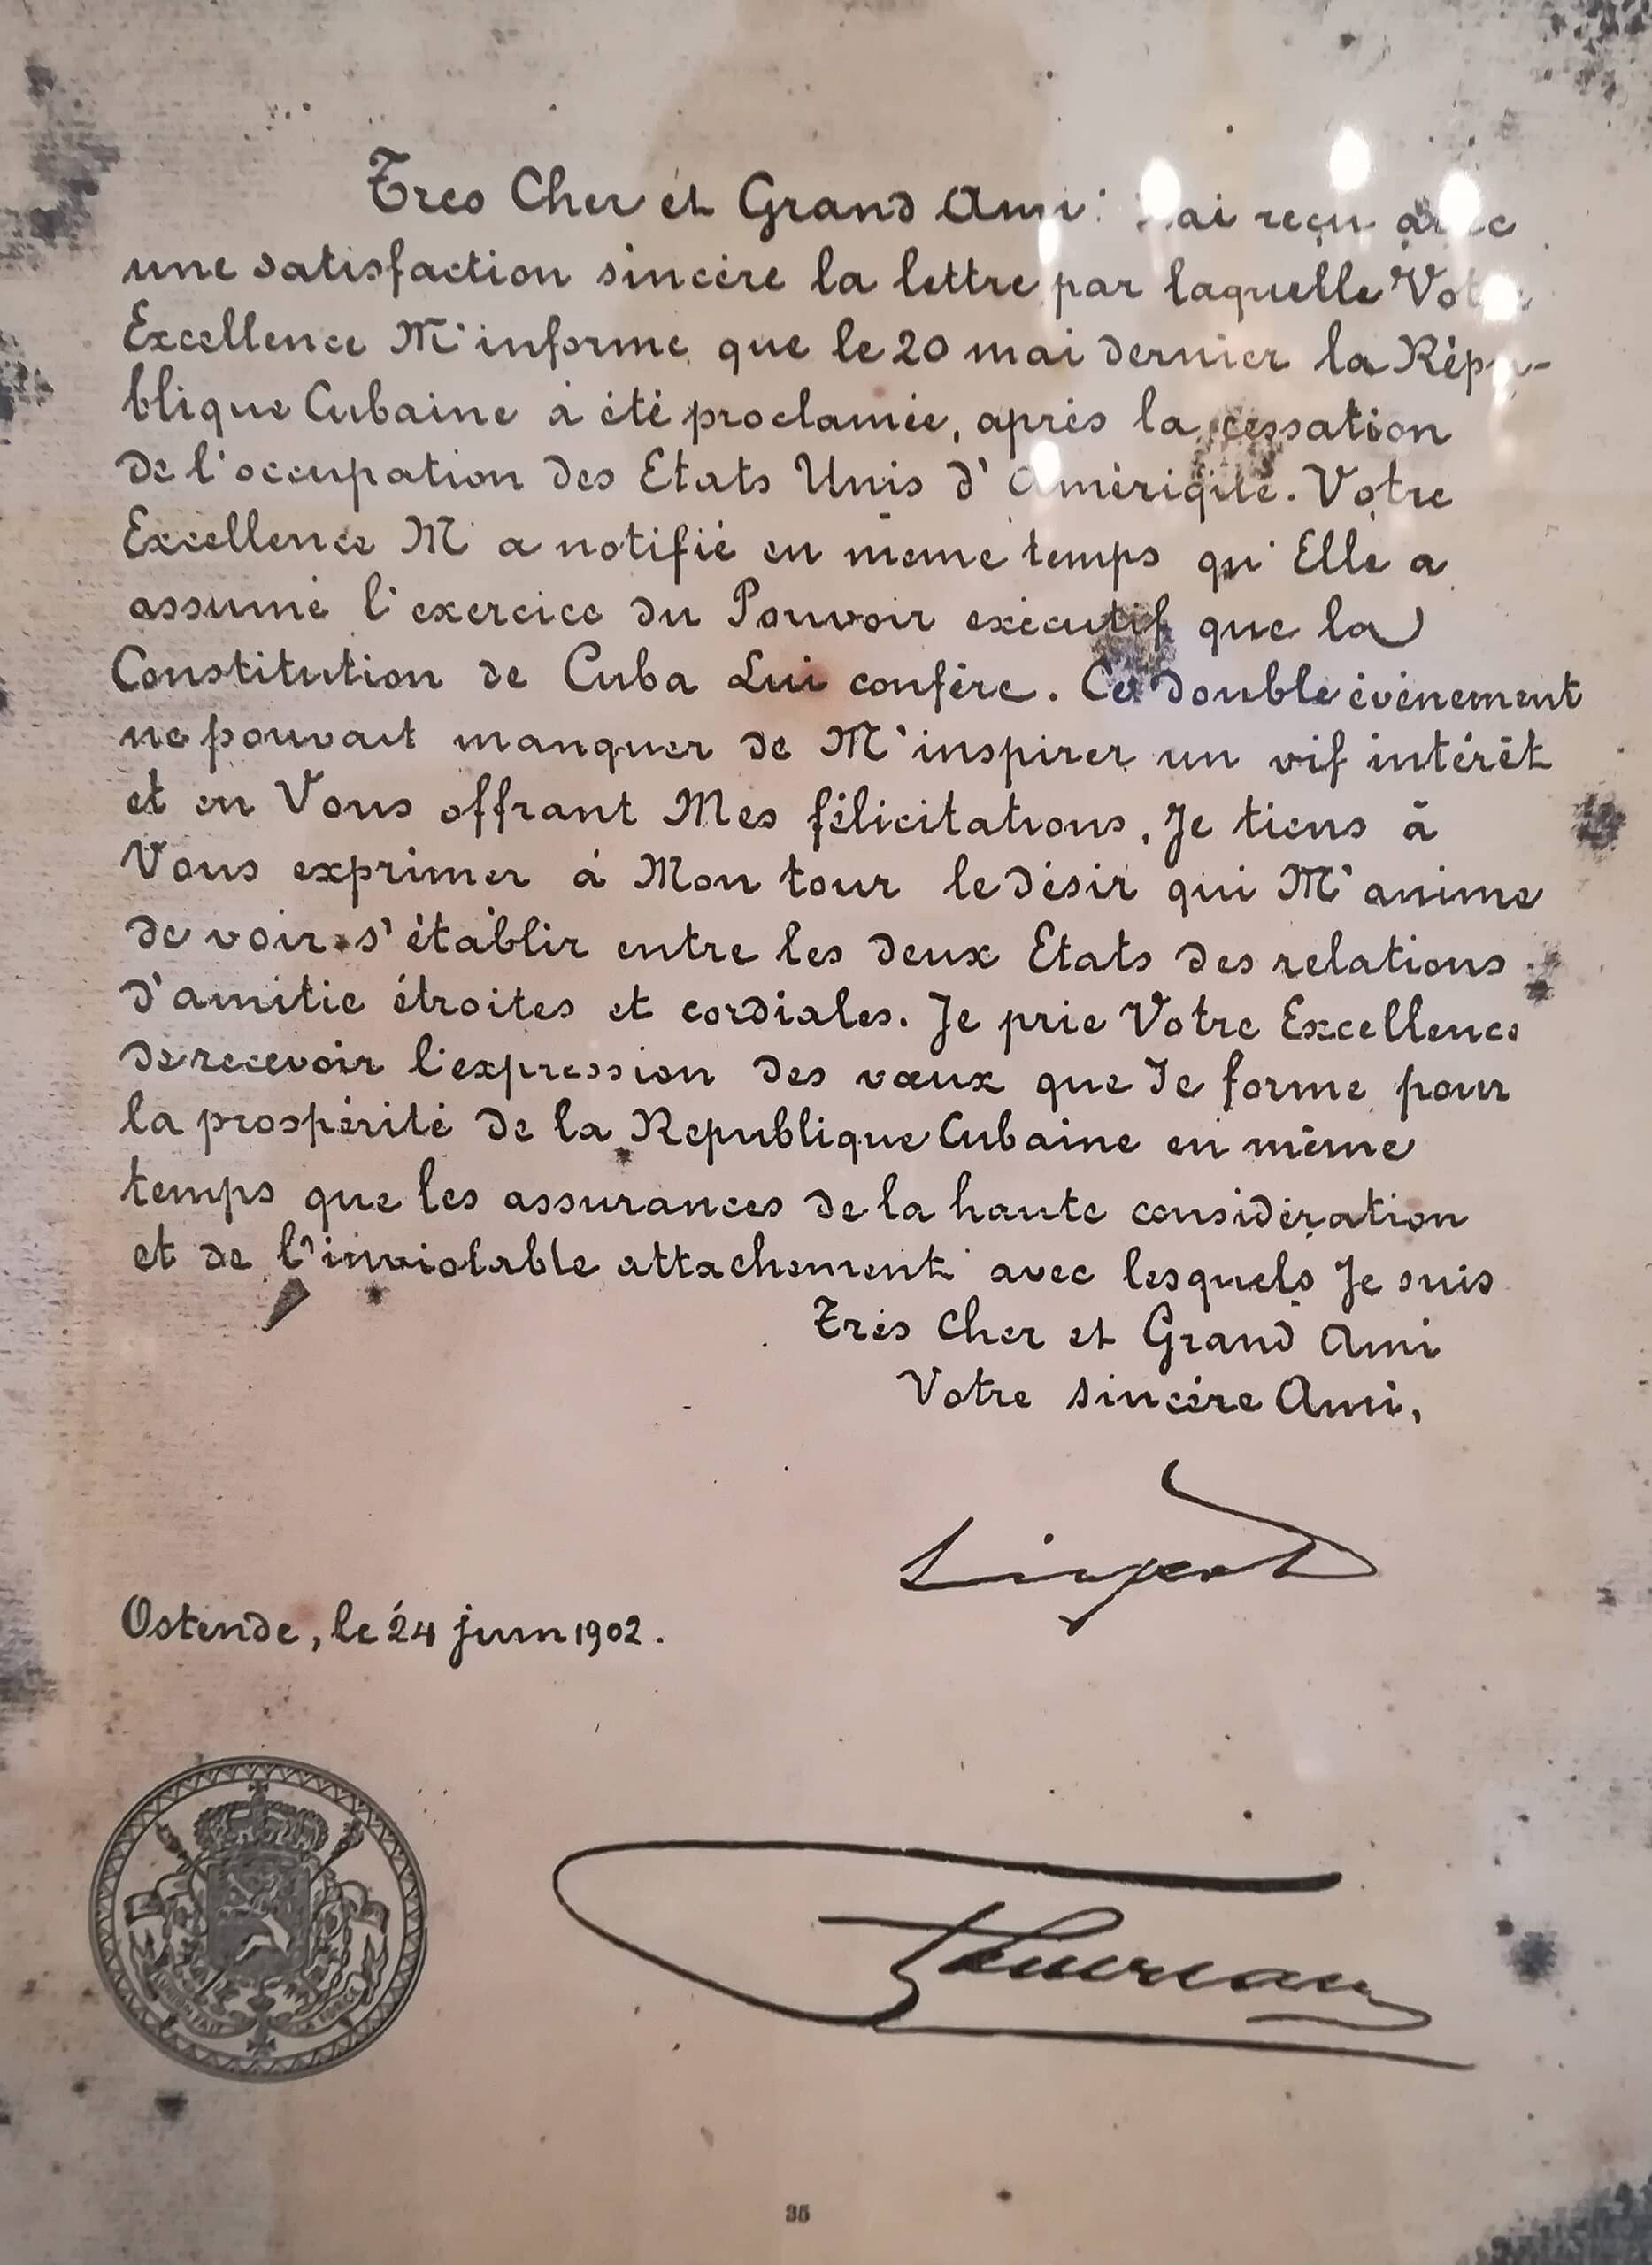 Très Cher et Grand Ami: J'ai reçu avec
une satisfaction sincère la lettre par laquelle Votre
Excellence M'informe que le 20 mai dernier la Répu-
blique Cubaine a été proclamée, après la cessation
de l'occupation des Etats Unis d'Amérique. Votre
Excellence M'a notifié en même temps qu'Elle a
assumé l'exercice du Pouvoir exécutif que la
Constitution de Cuba Lui confère. Ce double événement
ne pouvait manquer de M'inspirer un vif intérêt
et en Vous offrant Mes félicitations, Je tiens à
Vous exprimer à Mon tour le désir qui M'anime
de voir s'établir entre les deux Etats des relations
d'amitié étroites et cordiales. Je prie Votre Excellence
de recevoir l'expression des vœux que Je forme pour
la prospérité de la Republique Cubaine en même
temps que les assurances de la haute considération
et de l'inviolable attachement avec lesquels Je suis
Très Cher et Grand Ami
Votre sincère Ami,
Ostende, le 24 juin 1902.
L'UNION FAIT LA FORCE
35